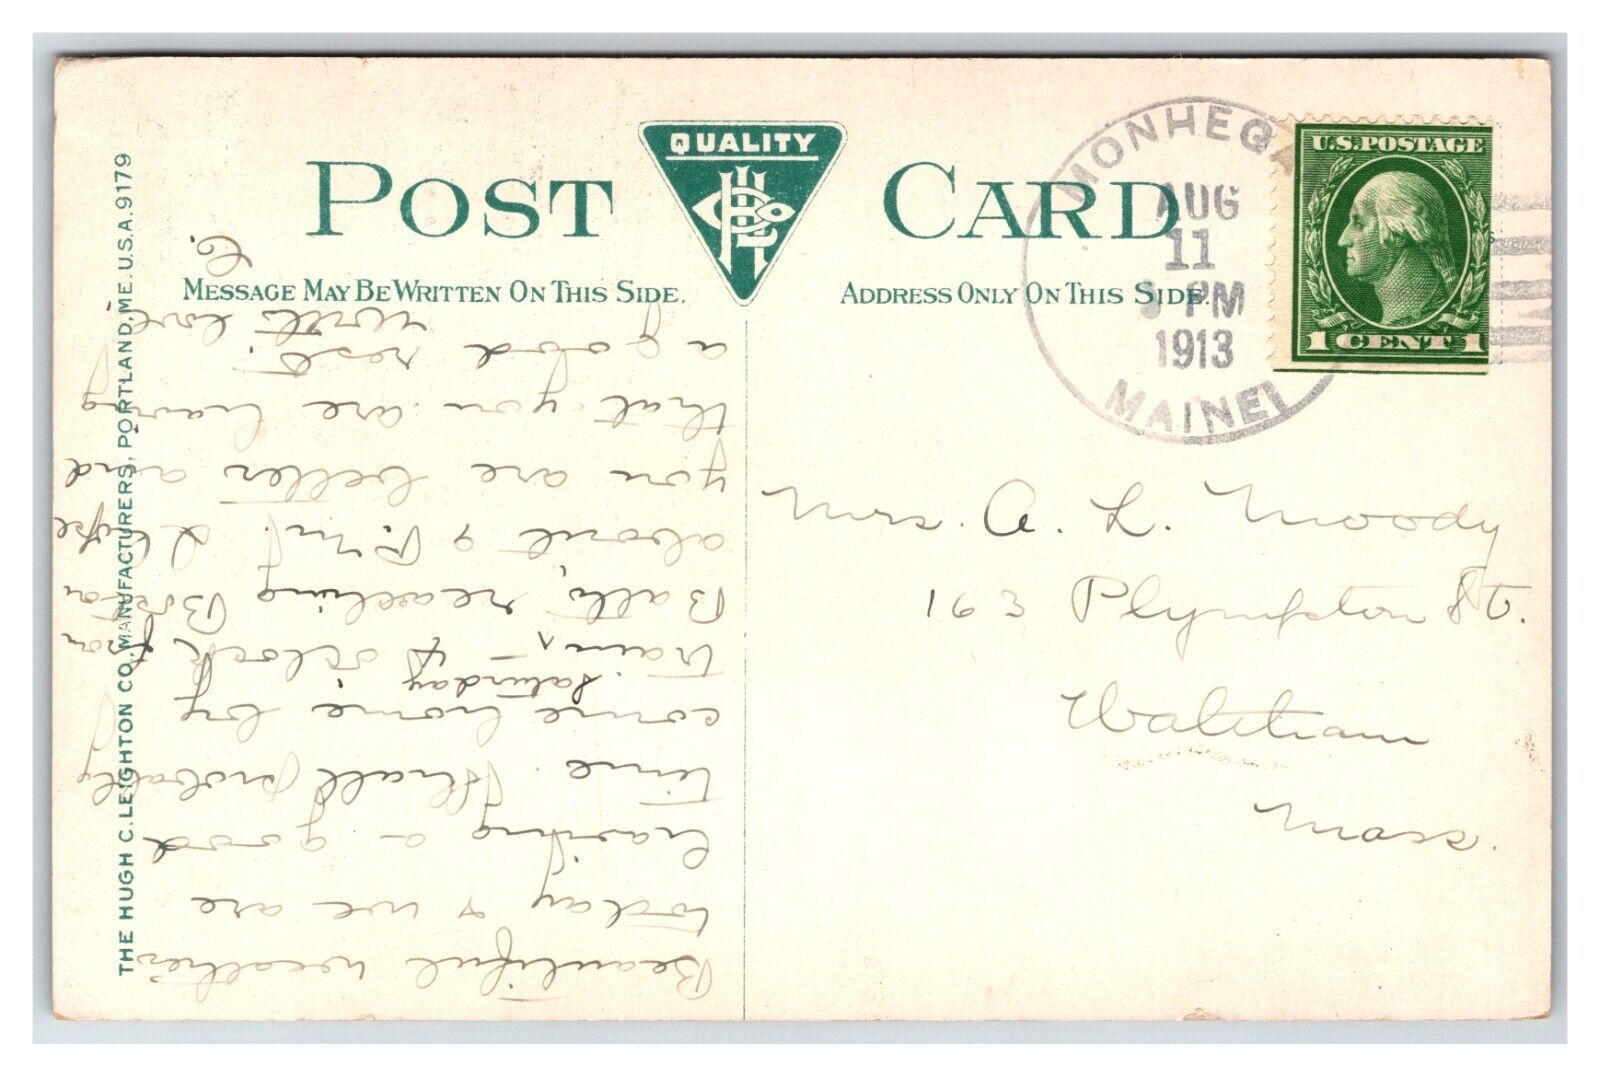 QUALITY
POST CARD
MESSAGE MAY BE WRITTEN ON THIS SIDE.
ADDRESS ONLY ON THIS SIDE.
THE HUGH C. LEIGHTON CO., MANUFACTURERS, PORTLAND, ME. U.S.A. 9179
MONHEGA
AUG
11
PM
1913
MAINE
U.S. POSTAGE
1 CENT 1
Mrs. A. L. Moody
163 Plympton St.
Waltham
Mass.
Beautiful weather
today & we are
having a good
time. Shall probably
come home by
Saturday
train, 4 o'clock from
Bath, reaching Boston
about 9 P.M. I hope
you are better and
that you are having
a good rest.
With love,
C.